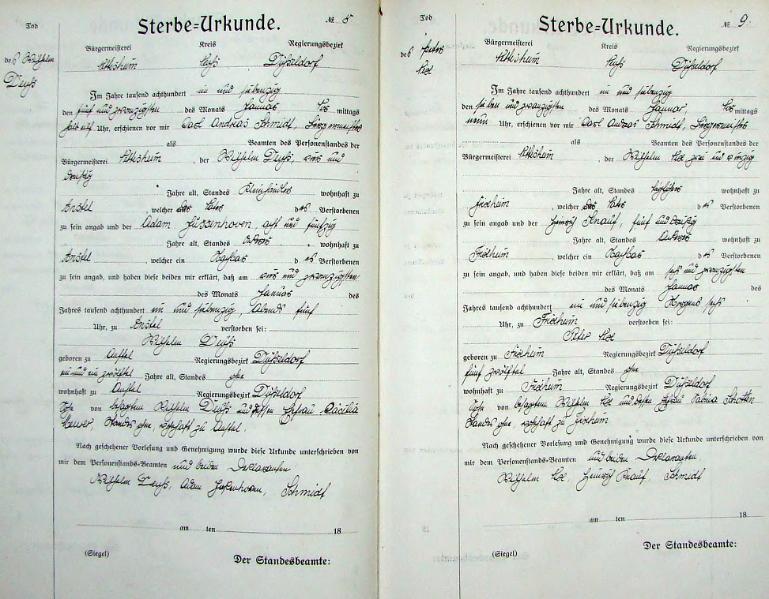 Tod
Sterbe=Urkunde.
№ 8
des Wilhelm
Deuß
Bürgermeisterei Kreis Regierungsbezirk
Düsseldorf
Im Jahre tausend achthundert ein und siebenzig
den fünf und zwanzigsten des Monats Januar mittags
Uhr, erschienen vor mir Carl Andreas Schmidt, Bürgermeister
als Beamten des Personenstandes der
Bürgermeisterei der Wilhelm Deuß, und
dreißig
Jahre alt, Standes wohnhaft zu
Anstel welcher Vater des Verstorbenen
zu sein angab und der Adam Jussenhoven, acht und fünfzig
Jahre alt, Standes Ackerer wohnhaft zu
Anstel welcher ein des Verstorbenen
zu sein angab, und haben diese beiden mir erklärt, daß am und zwanzigsten
des Monats Januar des
Jahres tausend achthundert ein und siebenzig Abends fünf
Uhr, zu Anstel verstorben sei:
Wilhelm Deuß
geboren zu Anstel Regierungsbezirk Düsseldorf
Jahre alt, Standes ohne
wohnhaft zu Anstel Regierungsbezirk Düsseldorf
Sohn von besagtem Wilhelm Deuß und dessen Ehefrau Cäcilia
Standes ohne, wohnhaft zu Anstel.
Nach geschehener Vorlesung und Genehmigung wurde diese Urkunde unterschrieben von
mir dem Personenstands-Beamten und beiden Declaranten
Wilhelm Deuß, Adam Jussenhoven, Schmidt
am ten 18
(Siegel) Der Standesbeamte:
Tod
Sterbe=Urkunde.
№ 9.
des Peter
Bürgermeisterei Kreis Regierungsbezirk
Düsseldorf
Im Jahre tausend achthundert ein und siebenzig
den sieben und zwanzigsten des Monats Januar, mittags
neun Uhr, erschienen vor mir Carl Andreas Schmidt, Bürgermeister
als Beamten des Personenstandes der
Bürgermeisterei der Wilhelm zwei und
Jahre alt, Standes wohnhaft zu
Frixheim welcher Vater des Verstorbenen
zu sein angab und der Heinrich Knauf, fünf und dreißig
Jahre alt, Standes Ackerer wohnhaft zu
Frixheim welcher ein des Verstorbenen
zu sein angab, und haben diese beiden mir erklärt, daß am sechs und zwanzigsten
des Monats Januar des
Jahres tausend achthundert ein und siebenzig Morgens sechs
Uhr, zu Frixheim verstorben sei:
Peter
geboren zu Frixheim Regierungsbezirk Düsseldorf
fünf zwölftel Jahre alt, Standes ohne
wohnhaft zu Frixheim Regierungsbezirk Düsseldorf
Sohn von besagtem Wilhelm und dessen Ehefrau
Standes ohne, wohnhaft zu Frixheim
Nach geschehener Vorlesung und Genehmigung wurde diese Urkunde unterschrieben von
mir dem Personenstands-Beamten und beiden Declaranten.
Wilhelm Heinrich Knauf, Schmidt
am ten 18
(Siegel) Der Standesbeamte: